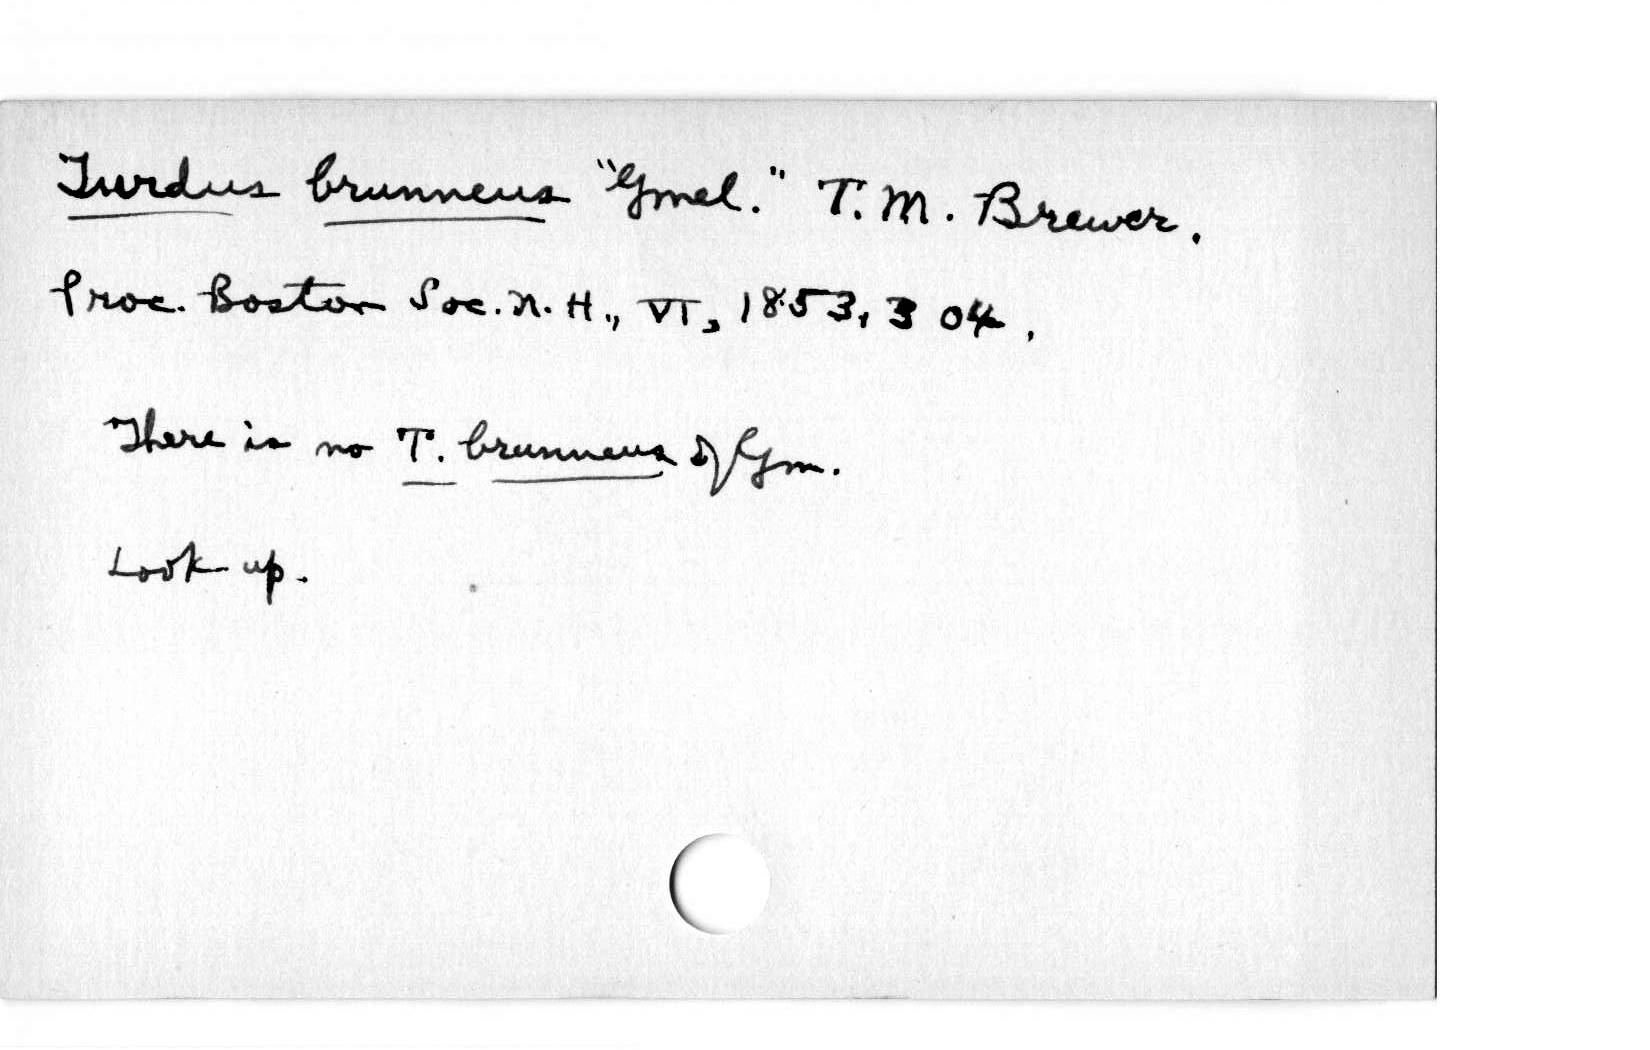 Turdus brunneus "Gmel." T. M. Brewer.
Proc. Boston Soc. N. H., VI, 1853, 304.
There is no T. brunneus of Gm.
Look up.